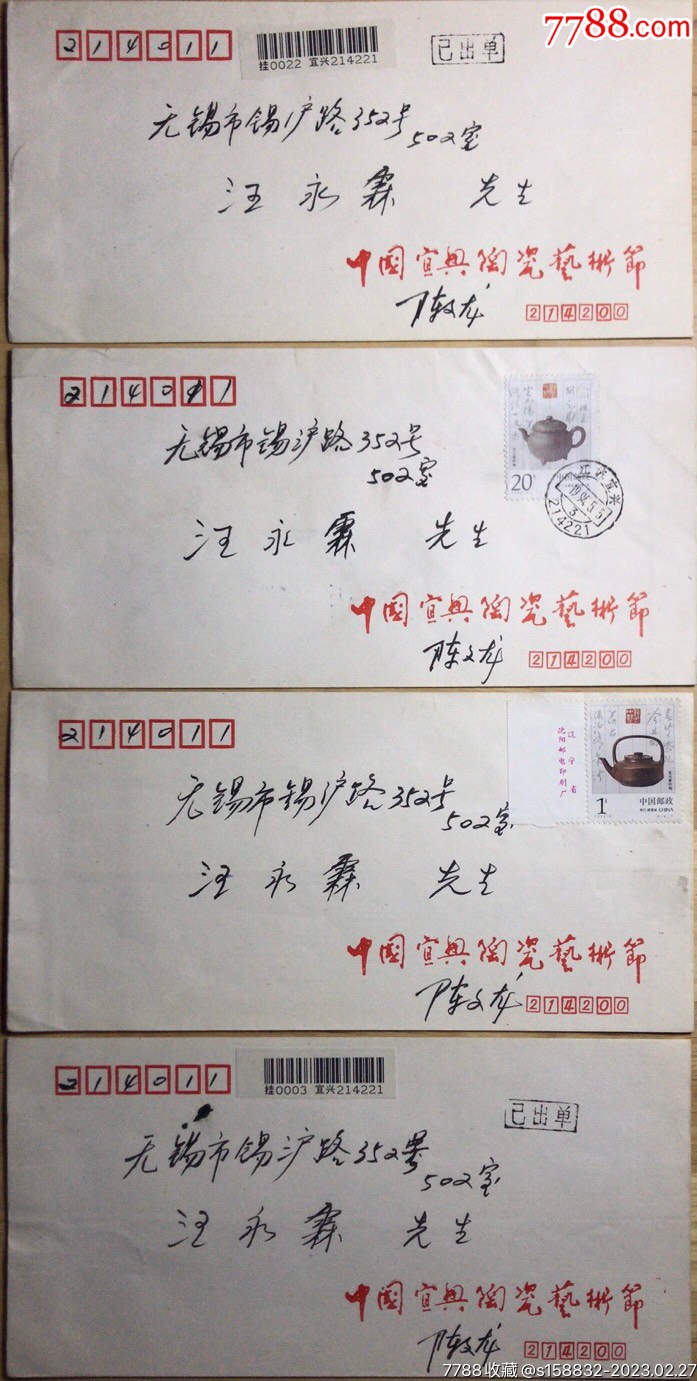 7788.com
214011
挂0022 宜兴214221
已出单
无锡市锡沪路352号
502室
汪永霖 先生
中國宜興陶瓷藝術節
陈文龙
214200
214011
20分
江苏宜兴
214221
无锡市锡沪路352号
502室
汪永霖 先生
中國宜興陶瓷藝術節
陈文龙
214200
214011
辽宁省
沈阳邮电印刷厂
1
中国邮政
CHINA
无锡市锡沪路352号
502室
汪永霖 先生
中國宜興陶瓷藝術節
陈文龙
214200
214011
挂0003 宜兴214221
已出单
无锡市锡沪路352号
502室
汪永霖 先生
中國宜興陶瓷藝術節
陈文龙
214200
7788收藏@s158832-2023.02.27